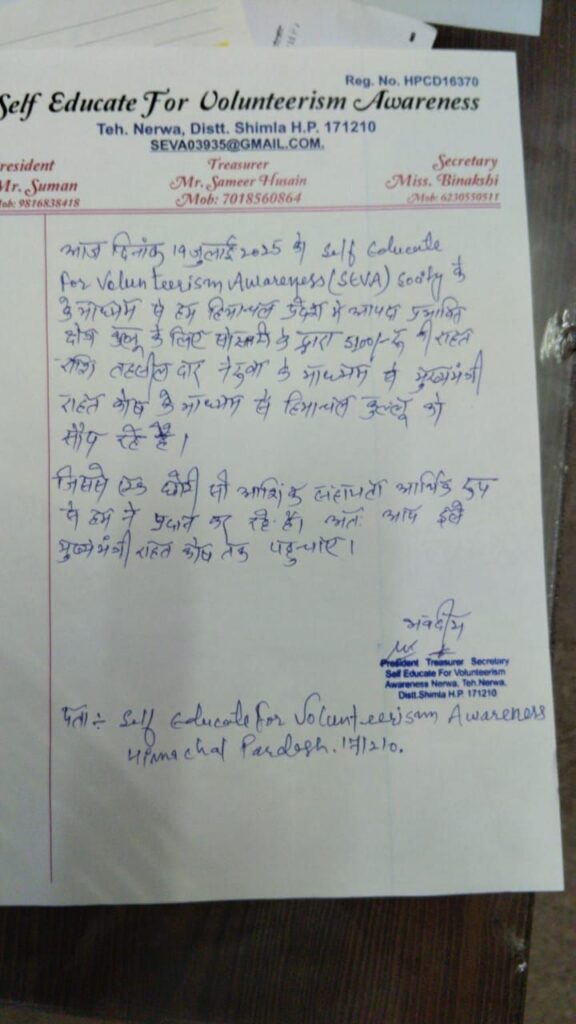 Reg. No. HPCD16370
Self Educate For Volunteerism Awareness
Teh. Nerwa, Distt. Shimla H.P. 171210
SEVA03935@GMAIL.COM.
resident Treasurer Secretary
Mr. Suman Mr. Sameer Husain Miss. Binakshi
ob: 9816838418 Mob: 7018560864 Mob: 6230550511
आज दिनांक 19 जुलाई 2025 को Self Educate
For Volunteerism Awareness (SEVA) Society के
के माध्यम से हम हिमाचल प्रदेश में आपदा प्रभावित
क्षेत्र कुल्लू के लिए सोसायटी के द्वारा 5100/-रू की राहत
राशि तहसीलदार नेरवा के माध्यम से मुख्यमंत्री
राहत कोष के माध्यम से हिमाचल कुल्लू को
सौंप रहे है।
जिससे एक छोटी सी आर्थिक सहायता आर्थिक रूप
से हम ने प्रदान कर रहे है। अतः आप इसे
मुख्यमंत्री राहत कोष तक पहुचाए।
भवदीय
President Treasurer Secretary
Self Educate For Volunteerism
Awareness Nerwa, Teh.Nerwa,
Distt.Shimla H.P. 171210
पता :- Self Educate For Volunteerism Awareness
Himachal Pardesh. 171210.